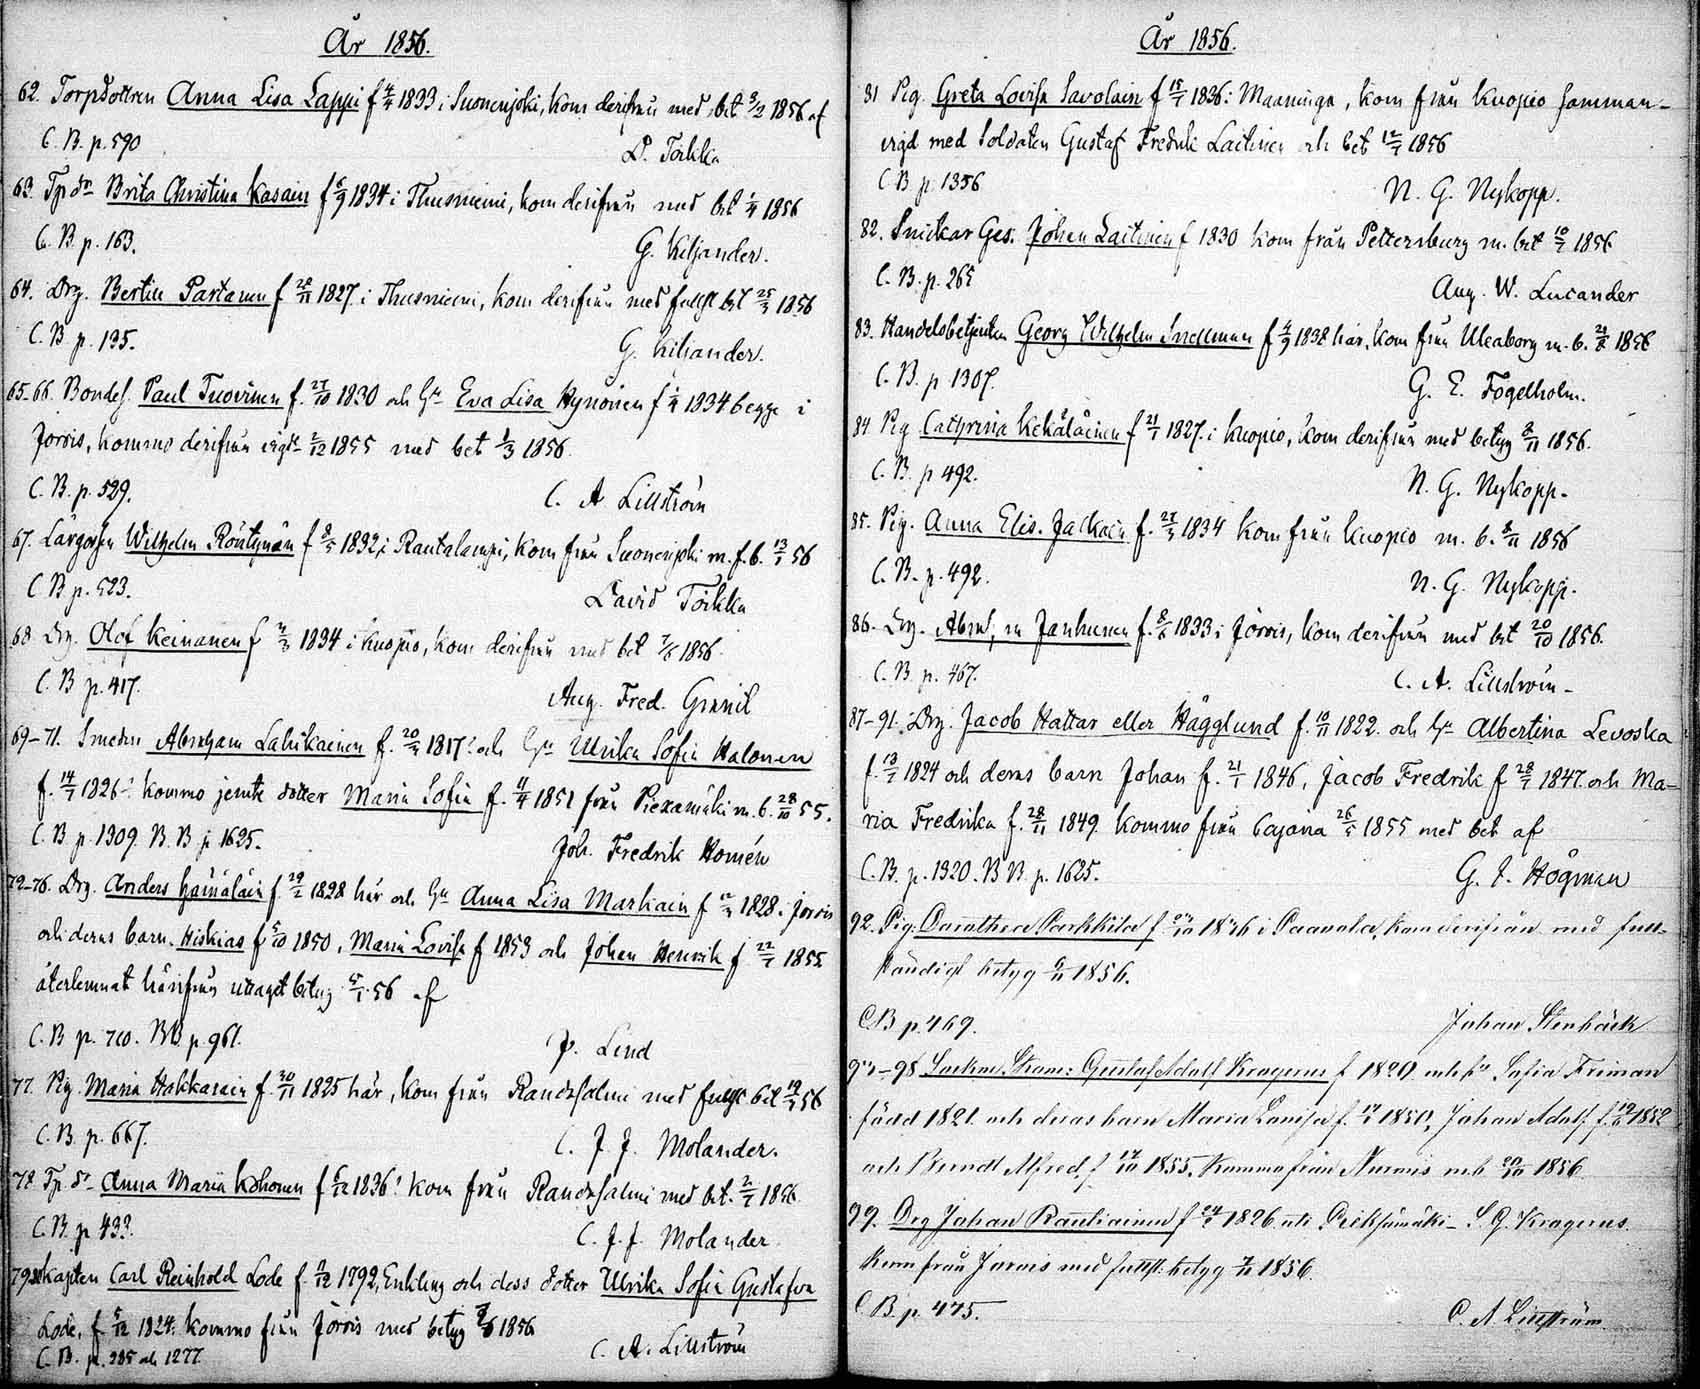 År 1856.
62. Torpdottren Anna Lisa Lappi f 4/4 1833 i Suonenjoki, kom derifrån med bet 3/2 1856 af
C. B. p. 590
D. Toikka
63. Tp dr Brita Christina Kasain f 6/9 1834 i Thusniemi, kom derifrån med bet 1/4 1856
C. B. p. 163.
G. Kiljander.
64. Drg. Bertil Partanen f 28/11 1827 i Thusniemi, kom derifrån med fullst bet 25/3 1856
C. B. p. 135.
G. Kiljander.
65-66. Bondes. Paul Tuovinen f. 27/10 1830 och Hu Eva Lisa Hynönen f 1/4 1834 begge i
Jorois, kommo derifrån vigde 2/12 1855 med bet 1/3 1856.
C. B. p. 529.
C. A Lillström
67. Lärgossen Wilhelm Röntynän f 8/5 1832 i Rantalampi, kom från Suonenjoki m. f. b. 13/5 56
C B p. 523.
David Toikka
68 Drg. Olof Keinanen f 2/3 1834 i Kuopio, kom derifrån med bet 7/6 1856.
C. B p. 417.
Aug. Fred. Granit
69-71. Smeden Abraham Lahikainen f. 20/3 1817 och Hu Ulrika Sofia Halonen
f. 14/7 1826 kommo jemte dotter Maria Sofia f. 11/4 1851 från Piexamäki m. b. 28/10 55.
C. B p. 1309. B. B p 1625.
Joh. Fredrik Homén
72-76. Drg. Anders Hämäläin f. 29/2 1828 här och Hu Anna Lisa Markain f 12/3 1828 i Jorois
och deras barn. Hiskias f 5/10 1850, Maria Lovisa f 1853 och Johan Henrik f 22/7 1855
återlemnat härifrån uttaget betyg 5/1 56 af
C. B p. 720. BB. p. 961.
J. Lind
77. Pig. Maria Hakkarain f. 30/11 1825 här, kom från Randsalmi med fullst bet 19/3 56
C. B. p. 667.
C. J. J. Molander.
78. Tp. dr Anna Maria Kohonen f 6/12 1836 kom från Randsalmi med bet. 2/7 1856
C. B. p. 433.
C. J. J. Molander
79-80 Kapten Carl Reinhold Lode f 11/12 1792, Enkling och dess dotter Ulrika Sofia Gustafva
Lode, f 5/12 1824. kommo från Jorois med betyg 1856
C. B. p. 285 och 1277
C. A. Lillström
År 1856.
81 Pig. Greta Lovisa Savolain f 15/7 1836 i Maaninga, kom från Kuopio samman-
vigd med Soldaten Gustaf Fredrik Laitinen och bet 12/7 1856
C B p. 1356
N. G. Nykopp.
82. Snickar Ges. Johan Laitinen f 1830 kom från Pettersburg m. bet 10/7 1856
C. B. p. 265
Aug. W. Lucander
83. Handelsbetjenten Georg Wilhelm Snellman f 4/9 1838 här, kom från Uleaborg m. b. 21/8 1856
C. B. p 1307.
G. E. Fogelholm.
84 Pig Cathrina Kekäläinen f 21/1 1827. i Kuopio, kom derifrån med betyg 8/11 1856.
C. B. p 492.
N. G. Nykopp.
85. Pig. Anna Elis. Jalkain f. 27/3 1834 kom från Kuopio m. b. 8/11 1856
C. B. p. 492.
N. G. Nykopp.
86. Drg. Abrah, m Janhunen f. 8/6 1833 i Jorois, kom derifrån med bet 20/10 1856.
C. B. p. 467.
C. A. Lillström
87-91. Drg. Jacob Hattar eller Hägglund f. 10/11 1822. och Hu Albertina Levoska
f. 13/7 1824 och deras barn Johan f. 21/1 1846, Jacob Fredrik f 28/7 1847. och Ma-
ria Fredrika f. 28/11 1849. kommo från Cajana 26/5 1855 med bet af
C. B. p. 1320. B B. p. 1625.
G. J. Högman
92. Pig. Dorothea Parkkila f. 1836 i Paavola, kom derifrån med full-
ständigt betyg 6/11 1856.
CB p. 469.
Johan Stenbäck
93-98 Gustaf Adolf Kragerus f 1820 och hu Sofia Friman
född 1821 och deras barn Maria Lovisa f. 1850, Johan Adolf f. 1852
och Berndt Alfred f 17/10 1855, Komma från Nurmis m. b 1856
99. Drg Johan Rautiainen f 24/5 1826 uti Pieksämäki - S. G. Kragerus.
Kom från Jorois med fullst. betyg 1856.
CB p. 475.
C. A Lillström.